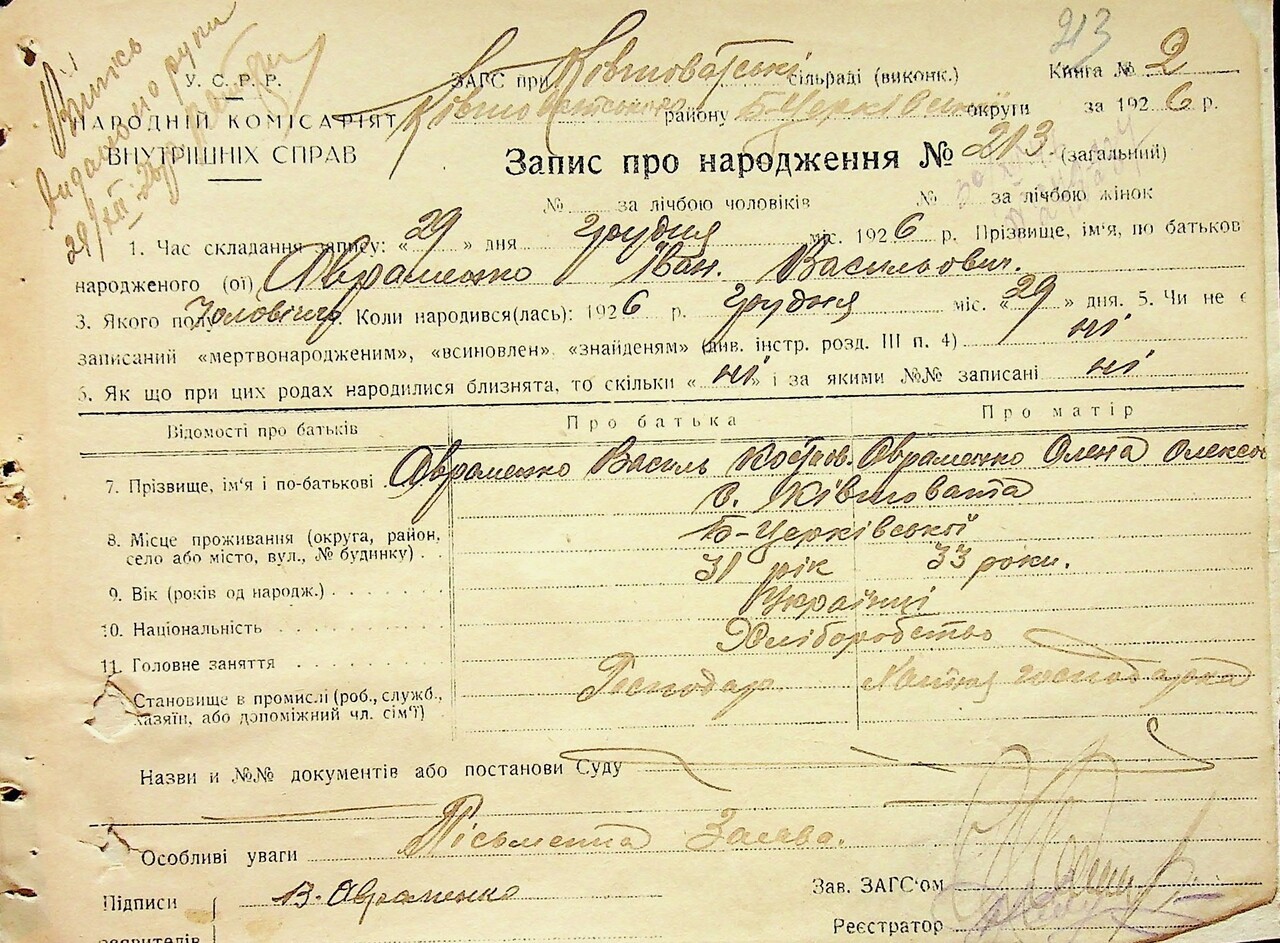 213
Випись
видано на руки
29/XII 26 р.
У. С. Р. Р.
НАРОДНІЙ КОМІСАРІЯТ
ВНУТРІШНІХ СПРАВ
ЗАГС при Ківшоватські сільраді (виконк.) Книга № 2
Ківшоватського району Б-Церківської округи за 1926 р.
Запис про народження № 213 (загальний)
№ за лічбою чоловіків № за лічбою жінок
1. Час складання запису: «29» дня грудня міс. 1926 р. Прізвище, ім'я, по батьков
народженого (ої) Авраменко Іван Васильович.
3. Якого полу Чоловічу. Коли народився(лась): 1926 р. грудня міс. «29» дня. 5. Чи не є
записаний «мертвонародженим», «всиновлен», «знайденям» (див. інстр. розд. III п. 4) ні
6. Як що при цих родах народилися близнята, то скільки «ні» і за якими №№ записані ні
Відомості про батьків Про батька Про матір
7. Прізвище, ім'я і по-батькові Авраменко Василь Авраменко Олена Олексо
с. Ківшовата
8. Місце проживання (округа, район, село або місто, вул., № будинку) Б-Церківської
9. Вік (років од народж.) 31 рік 33 роки.
10. Національність Українці
11. Головне заняття Хліборобство
Становище в промислі (роб., служб., хазяїн, або допоміжний чл. сім'ї) Господар Хатня господарка
Назви и №№ документів або постанови Суду
Особливі уваги Пісьменна Заява.
Підписи В. Авраменко Зав. ЗАГС'ом
заявителів Реєстратор